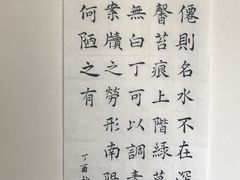 僊則名水不在深
馨苔痕上階綠草
無白丁可以調素
案牘之勞形南陽
何陋之有
丁酉